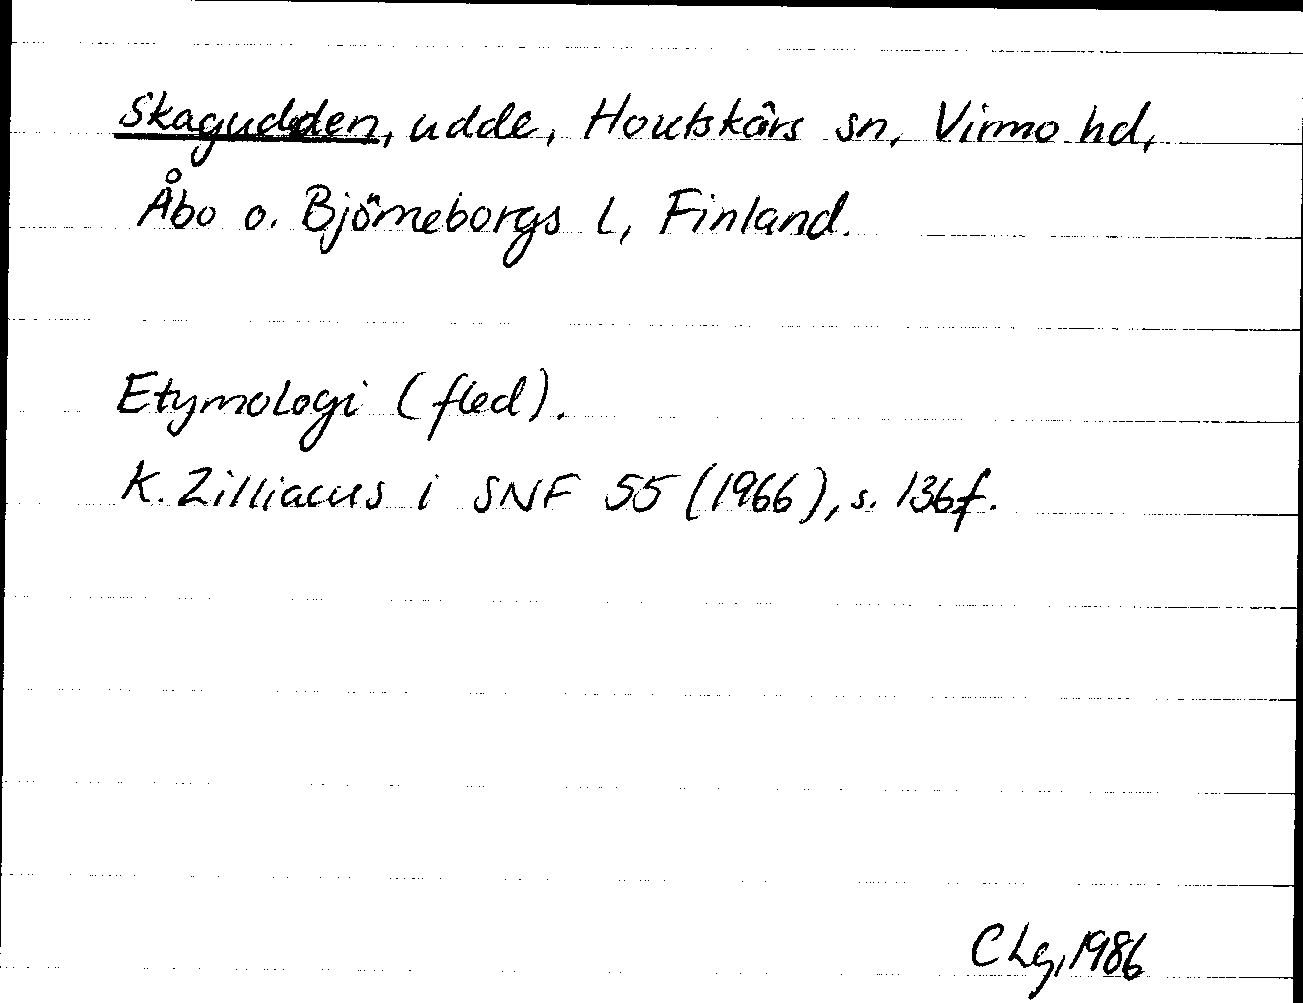 Skagudden, udde, Houtskärs sn, Virmo hd,
Åbo o. Björneborgs l, Finland.
Etymologi (fled).
K. Zilliacus i SNF 55 (1966), s. 136f.
CLg, 1986